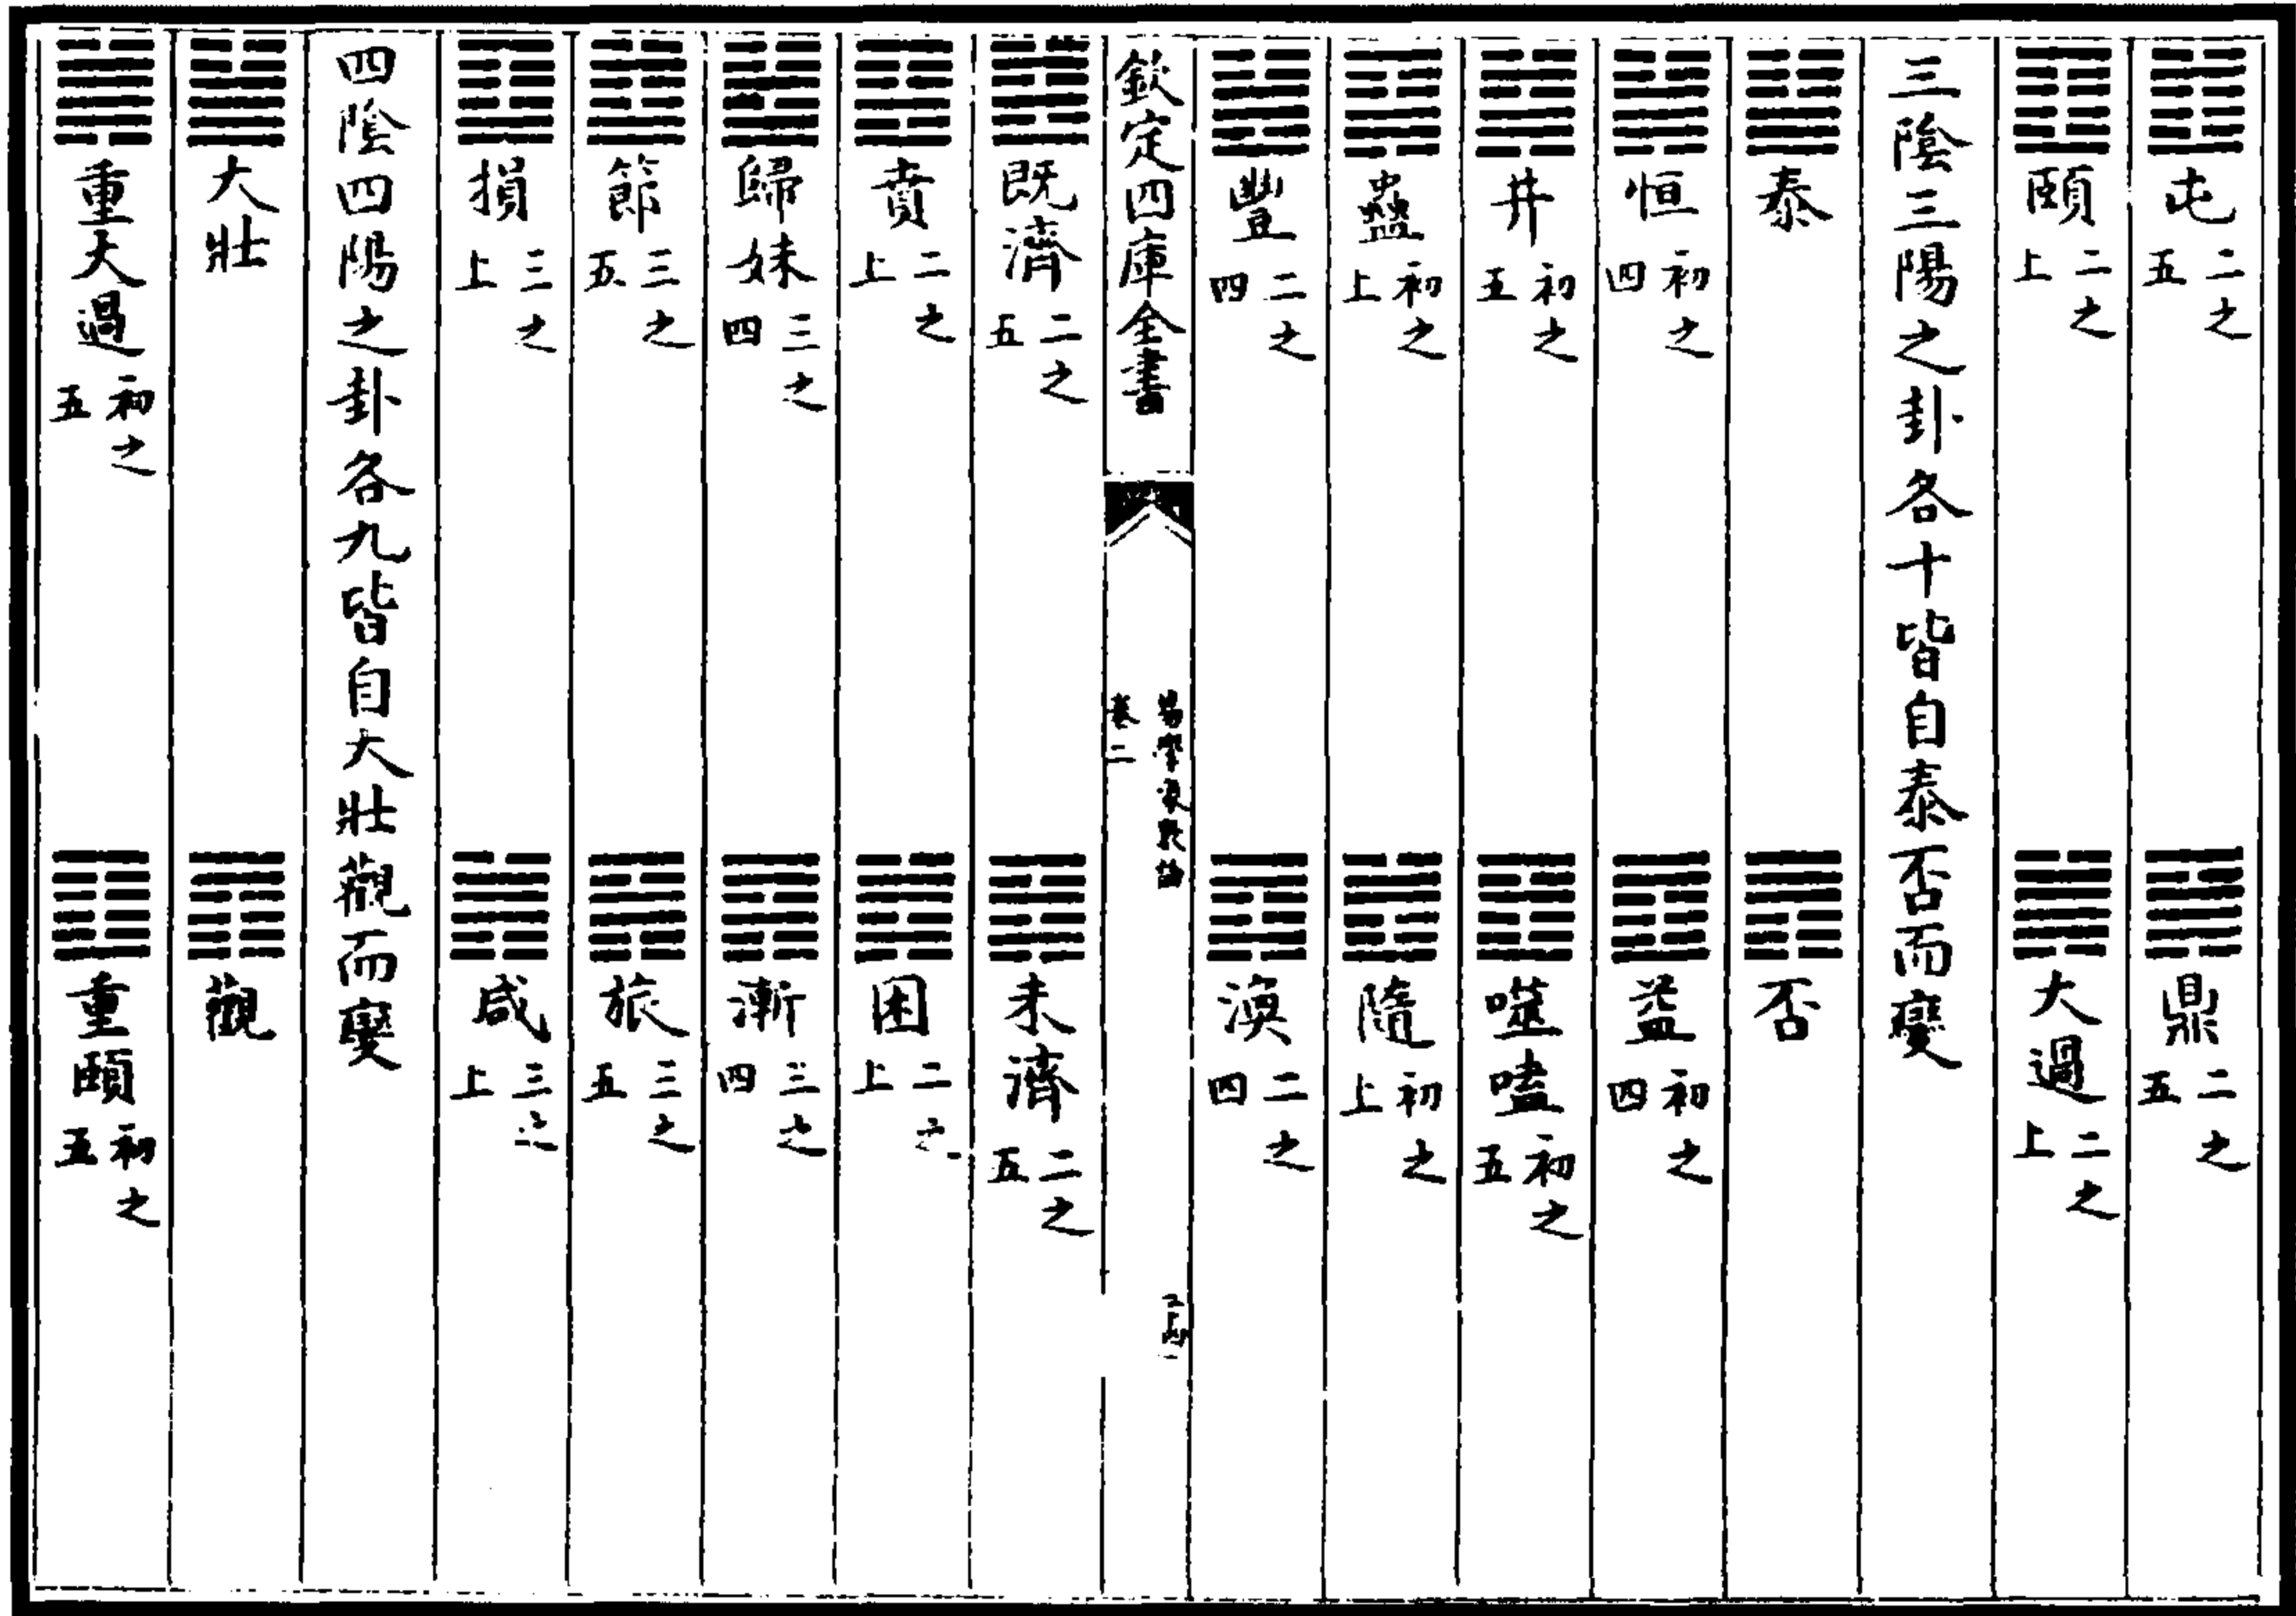 屯二之五 鼎二之五
頤二之上 大過二之上
三陰三陽之卦各十皆自泰否而變
泰 否
恒初之四 益初之四
井初之五 噬嗑初之五
蠱初之上 隨初之上
豐二之四 渙二之四
欽定四庫全書
易學象數論
卷二
既濟二之五 未濟二之五
賁二之上 困二之上
歸妹三之四 漸三之四
節三之五 旅三之五
損三之上 咸三之上
四陰四陽之卦各九皆自大壯觀而變
大壯 觀
重大過初之五 重頤初之五